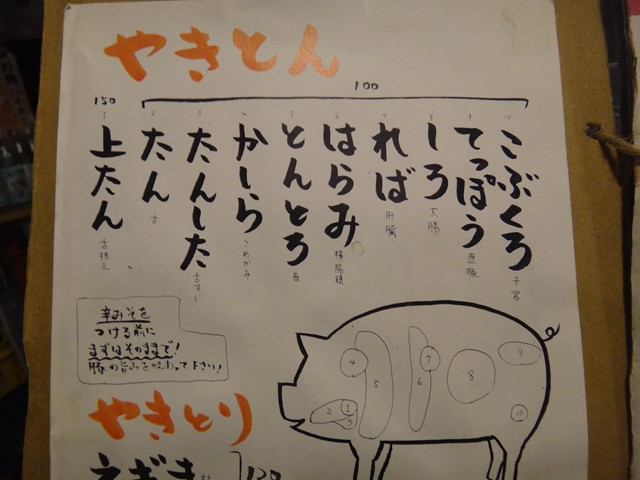 やきとん
100
150
10
こぶくろ
子宮
9
てっぽう
直腸
8
しろ
大腸
7
れば
肝臓
6
はらみ
横隔膜
5
とんとろ
首
4
かしら
こめかみ
3
たんした
舌すじ
2
たん
舌
1
上たん
舌根元
辛みそを
つける前に
まずはそのままで!
豚の旨みを味わって下さい!
4
5
6
7
8
9
10
2
1
3
やきとり
ねぎま
120